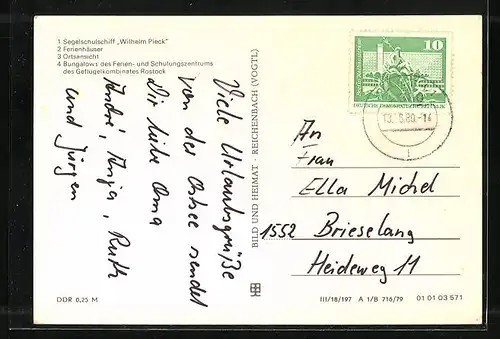 1 Segelschulschiff „Wilhelm Pieck"
2 Ferienhäuser
3 Ortsansicht
4 Bungalows des Ferien- und Schulungszentrums
des Geflügelkombinates Rostock
Viele Urlaubsgrüße
von der Ostsee sendet
Dir liebe Oma
André, Anja, Ruth
und Jürgen
DDR 0,25 M
BILD UND HEIMAT · REICHENBACH (VOGTL)
10
DEUTSCHE DEMOKRATISCHE REPUBLIK
80.-14
An
Frau
Ella Michel
1552 Brieselang
Heideweg 11
III/18/197 A 1/B 716/79 01 01 03 571